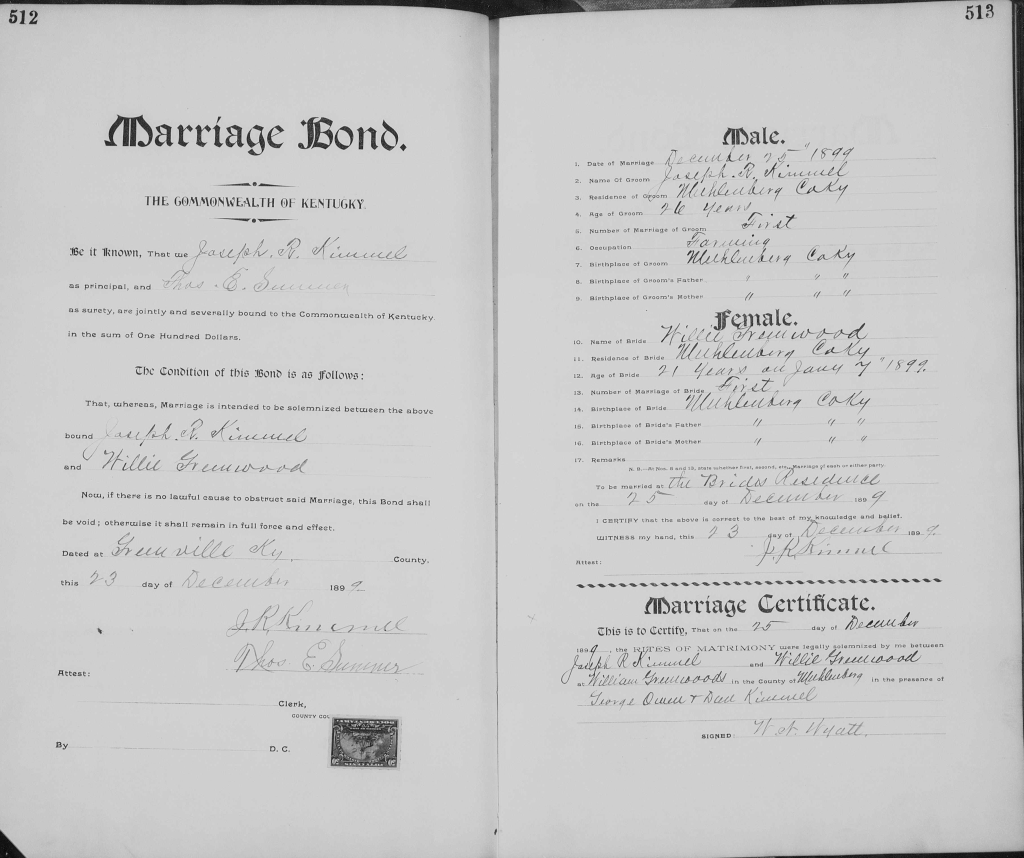 512
Marriage Bond.
THE COMMONWEALTH OF KENTUCKY.
Be it Known, That we Joseph. R. Kimmel
as principal, and Thos. E. Sumner
as surety, are jointly and severally bound to the Commonwealth of Kentucky.
in the sum of One Hundred Dollars.
The Condition of this Bond is as Follows:
That, whereas, Marriage is intended to be solemnized between the above
bound Joseph. R. Kimmel
and Willie Greenwood
Now, if there is no lawful cause to obstruct said Marriage, this Bond shall
be void; otherwise it shall remain in full force and effect.
Dated at Greenville Ky. County,
this 23 day of December 1899
J. R. Kimmel
Thos E. Sumner
Attest:
Clerk,
COUNTY
By D. C.
513
Male.
1. Date of Marriage December 25" 1899
2. Name Of Groom Joseph. R. Kimmel
3. Residence of Groom Muhlenberg Co Ky
4. Age of Groom 26 years
5. Number of Marriage of Groom First
6. Occupation Farming
7. Birthplace of Groom Muhlenberg Co Ky
8. Birthplace of Groom's Father " " "
9. Birthplace of Groom's Mother " " "
Female.
10. Name of Bride Willie Greenwood
11. Residence of Bride Muhlenberg Co Ky
12. Age of Bride 21 years on Jany 7" 1899.
13. Number of Marriage of Bride First
14. Birthplace of Bride Muhlenberg Co Ky
15. Birthplace of Bride's Father " " "
16. Birthplace of Bride's Mother " " "
17. Remarks
N. B.—At Nos. 5 and 13, state whether first, second, etc., Marriage of each or either party.
To be married at the Brides Residence
on the 25 day of December 1899
I CERTIFY that the above is correct to the best of my knowledge and belief.
WITNESS my hand, this 23 day of December 1899.
J. R. Kimmel
Attest:
Marriage Certificate.
This is to Certify, That on the 25 day of December
1899, the RITES OF MATRIMONY were legally solemnized by me between
Joseph R Kimmel and Willie Greenwood
at William Greenwoods in the County of Muhlenberg in the presence of
George Owen & Kimmel
SIGNED: Wyatt.